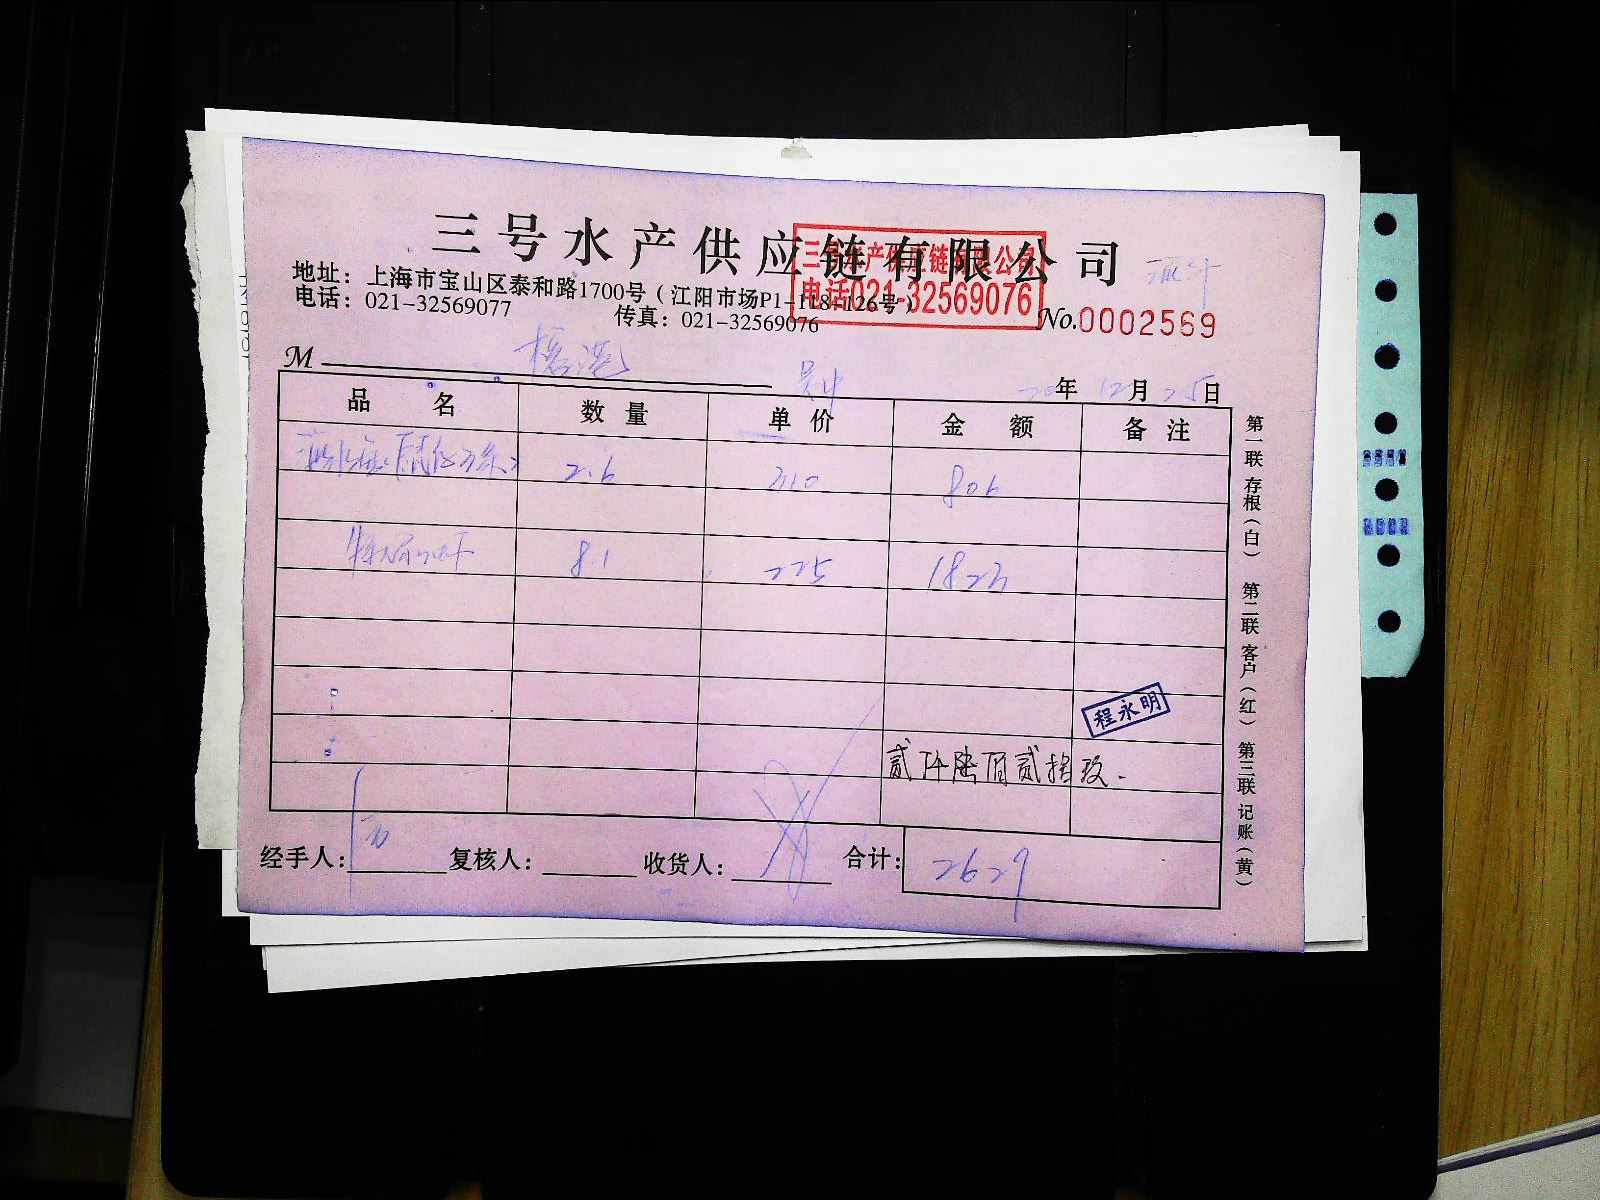 三号水产供应链有限公司
三号水产供应链有限公司
电话021-32569076
地址：上海市宝山区泰和路1700号（江阳市场P1-118-126号）
电话：021-32569077 传真：021-32569076
No.0002569
M
20年12月25日
品名 数量 单价 金额 备注
2.6 310 806
8.1 225 1823
程永明
贰仟陆佰贰拾玖.
经手人： 复核人： 收货人： 合计： 2629
第一联 存根（白） 第二联 客户（红） 第三联 记账（黄）